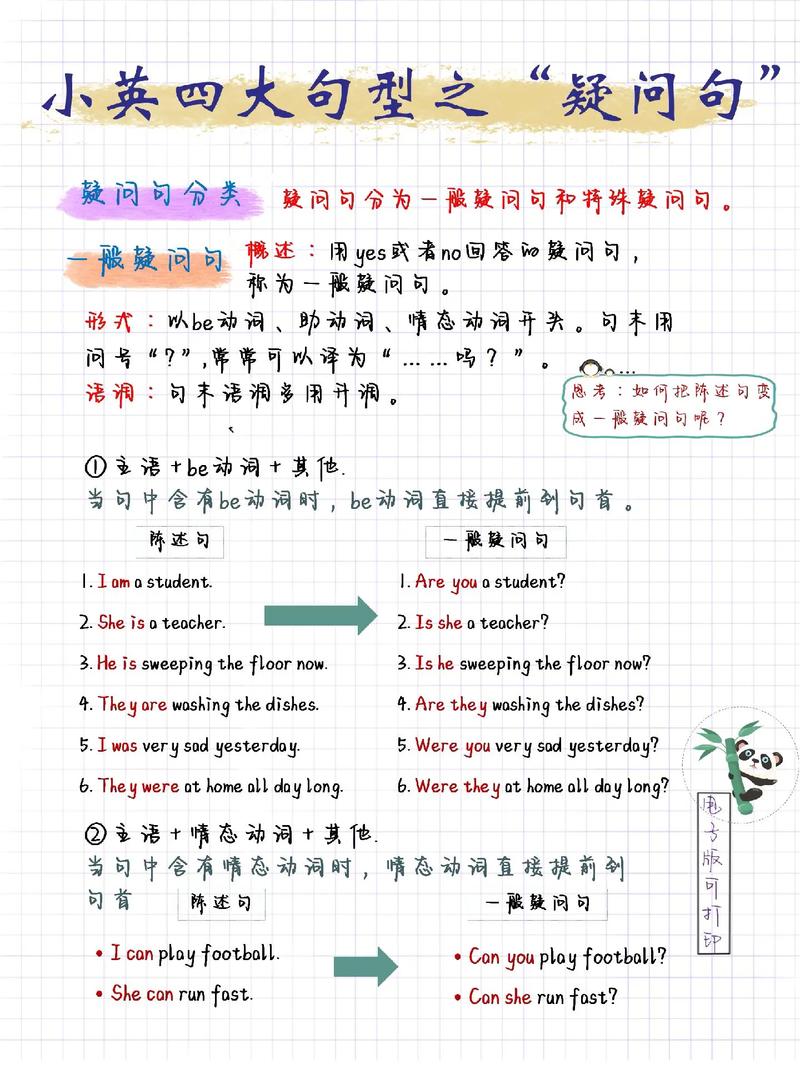 小英四大句型之“疑问句”
疑问句分类
疑问句分为一般疑问句和特殊疑问句。
一般疑问句
概述：用yes或者no回答的疑问句，
称为一般疑问句。
形式：以be动词、助动词、情态动词开头。句末用
问号“?”,常常可以译为“……吗？”。
语调：句末语调多用升调。
思考：如何把陈述句变
成一般疑问句呢？
①主语+be动词+其他.
当句中含有be动词时，be动词直接提前到句首。
陈述句
一般疑问句
1. I am a student.
1. Are you a student?
2. She is a teacher.
2. Is she a teacher?
3. He is sweeping the floor now.
3. Is he sweeping the floor now?
4. They are washing the dishes.
4. Are they washing the dishes?
5. I was very sad yesterday.
5. Were you very sad yesterday?
6. They were at home all day long.
6. Were they at home all day long?
②主语+情态动词+其他.
当句中含有情态动词时，情态动词直接提前到
句首
陈述句
一般疑问句
• I can play football.
• Can you play football?
• She can run fast.
• Can she run fast?
电子版可打印